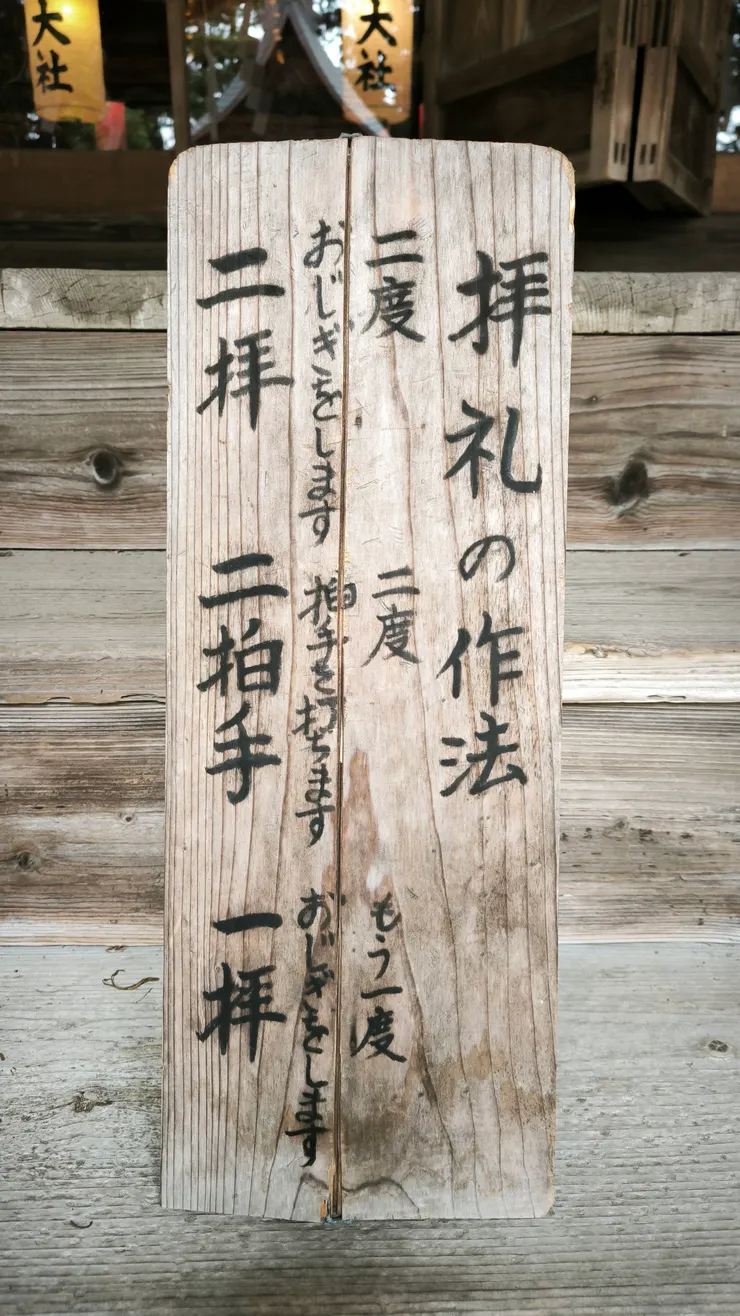 拝礼の作法
二度
おじぎをします
二拝
二度
拍手を打ちます
二拍手
もう一度
おじぎをします
一拝
大社
大社